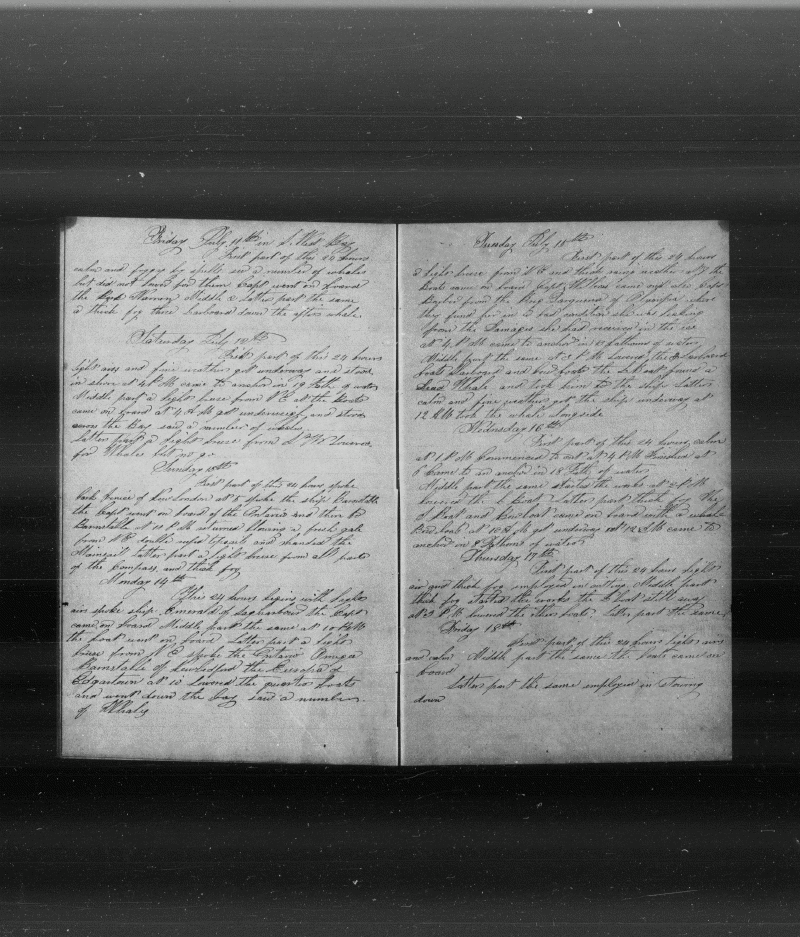 Friday July 11th in S. West Bay
First part of this 24 hours
calm and foggy by spells saw a number of whales
but did not lower for them Capt went on board
the Harvey Middle & Latter part the same
a thick fog three harboard down the after whale
Saturday July 12th
First part of this 24 hours
light airs and fine weather got underway and stood
in shore at 4 P M came to anchor in 19 Fath of water
Middle part a light breese from N E at the Boats
came on board at 4 A M got underweigh and stood
across the Bay saw a number of whales
Latter part a light breese from S W Lowered
for Whales but no go
Sunday 13th
First part of this 24 hours spoke
bark of New London at 8 spoke the ship Barnstable
the Capt went on board of the and then to
Barnstable at 10 P M returned blowing a fresh gale
from N E double reefd Topsails and handed the
Mainsail Latter part a light breese from all parts
of the Compass and thick fog
Monday 14th
This 24 hours begins with light
airs spoke ship of Sag harbour the Capt
came on board Middle part the same at 10 P M
the boat went on board Latter part a light
breese from N E spoke the Ontario
Barnstable of Newbedford the of
Edgartown at 10 Lowerd the quarter boats
and went down the bay saw a number
of Whales
Tuesday July 15th
First part of this 24 hours
a light breese from N E and thick rainy weather at the
Boats came on board Capt came
from the Brig of where
they found her in a bad condition she was leaking
from the Damages she had received in the ice
at 4 P M came to anchor in 8 fathoms of water
Middle part the same at 3 P M Lowerd the Larboard
boats and bow boats the L Boat found a
Dead Whale and took him to the ship Latter
calm and fine weather got the ship underway at
12 M took the whale alongside
Wednesday 16th
First part of this 24 hours calm
at 1 P M Commenced to cut at 4 P M Finished at
6 Came to an anchor in 18 Fath of water
Middle part the same started the works at 2 P M
lowered the L Boat Latter part thick fog the
L Boat and Bow boat came on board with a whale
at 10 A M got underway at 12 M came to
anchor in 8 Fathoms of water
Thursday 17th
First part of this 24 hours light
air and thick fog employed in cutting Middle part
thick fog started the works the L boat still away
at 3 P M lowered the other boats Latter part the same
Friday 18th
First part of this 24 hours light airs
and calms Middle part the same the boats came on
board
Latter part the same employed in Stowing
down